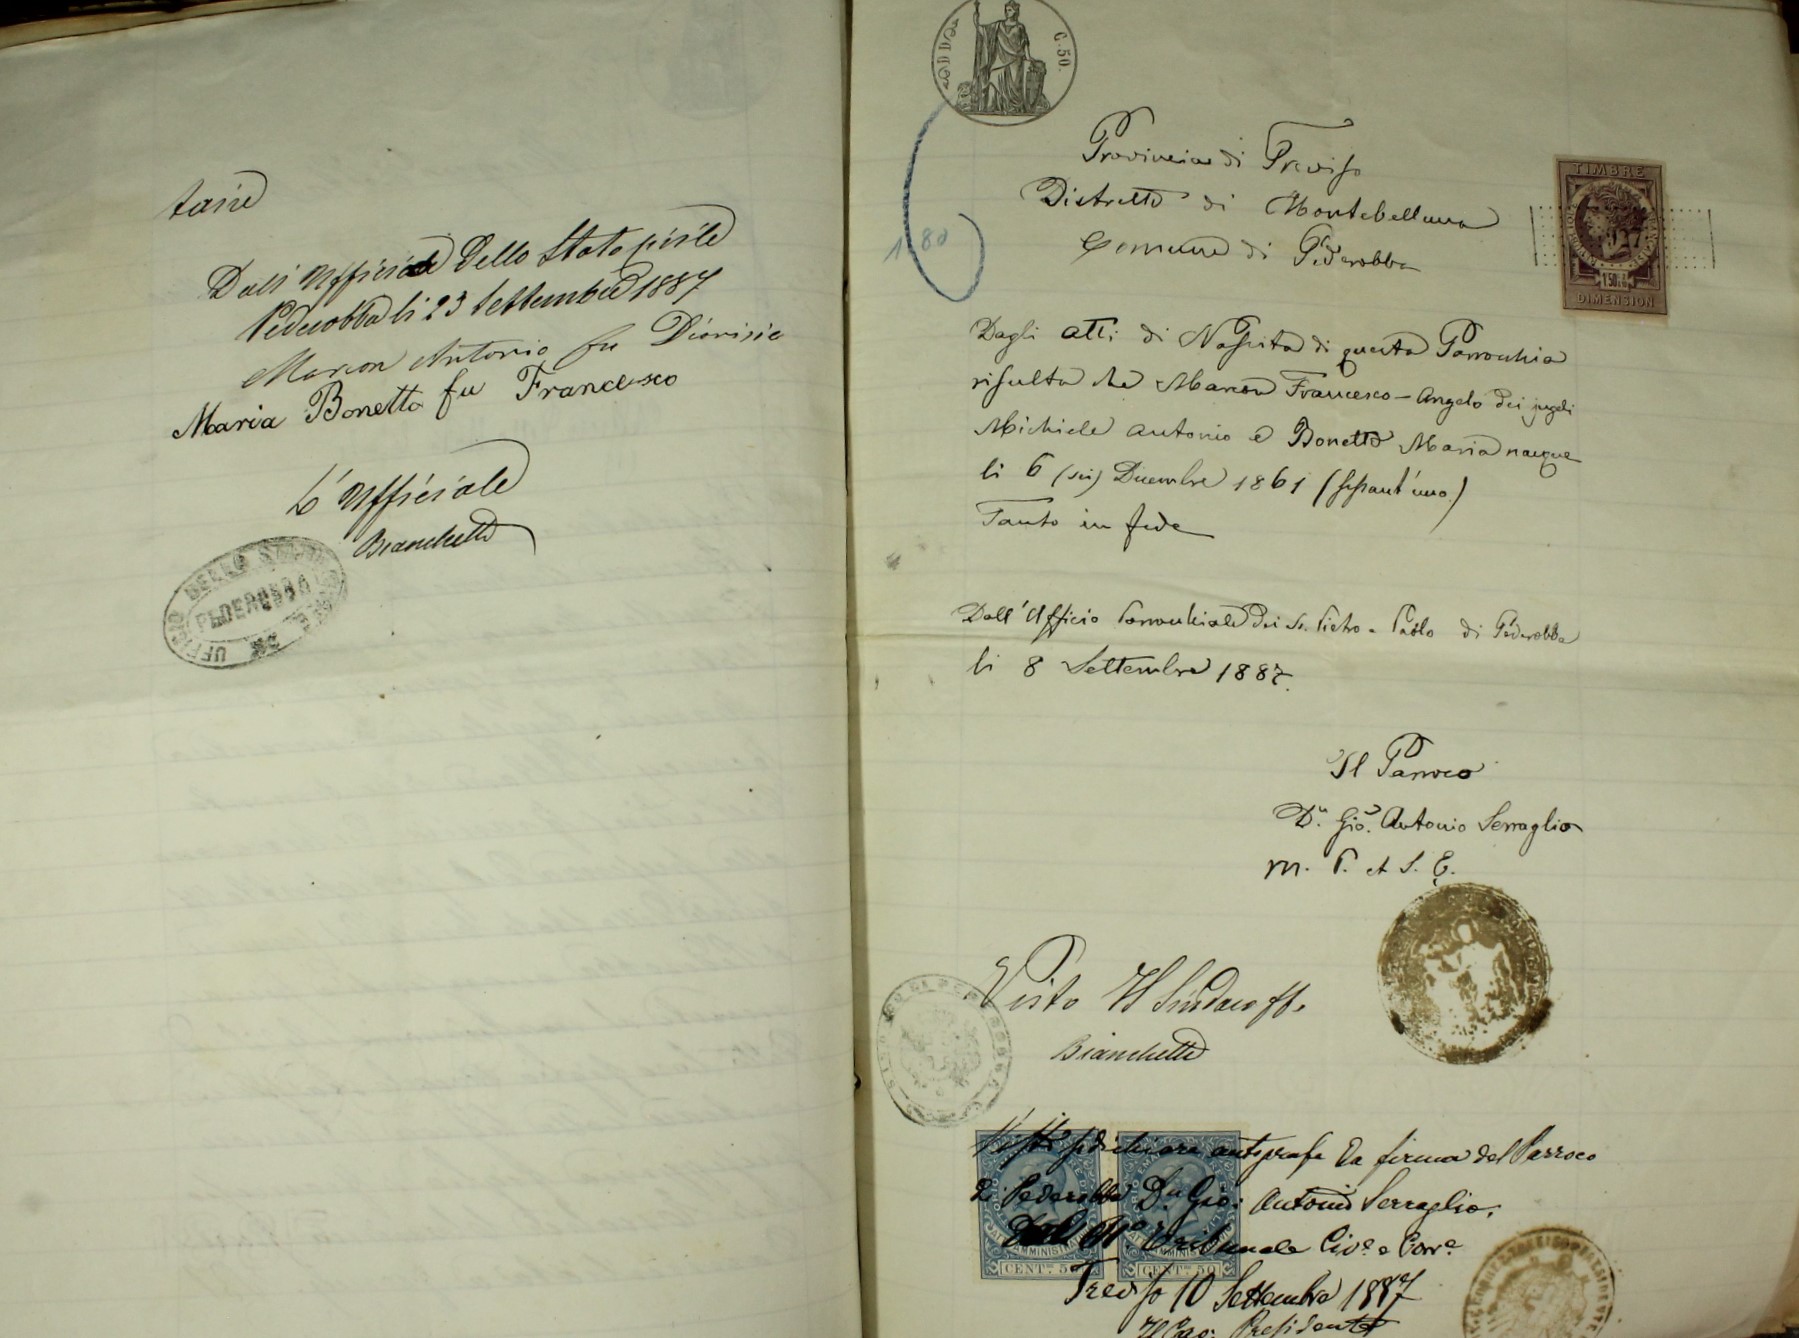 tario
Dall'Ufficio dello Stato civile
Pederobba li 23 Settembre 1887
Marcon Antonio fu Dionisio
Maria Bonetto fu Francesco
L'Ufficiale
Bianchetti
UFFICIO DELLO STATO CIVILE
PEDEROBBA
C. 50.
Provincia di Treviso
Distretto di Montebelluna
Comune di Pederobba
1 80
TIMBRE
1F50c
DIMENSION
Dagli atti di Nascita di questa Parrocchia
risulta che Marcon Francesco - Angelo dei jugali
Michiele Antonio e Bonetto Maria nacque
li 6 (sei) Dicembre 1861 (sessant'uno)
Tanto in fede
Dall'Ufficio Parrochiale dei Ss. Pietro e Paolo di Pederobba
li 8 Settembre 1887.
Il Parroco
Dn. Gio. Antonio Serraglio
M. P. et S. E.
Visto Il Sindaco ff.
Bianchetti
Visto si dichiara autografa la firma del Parroco
di Pederobba Dn Gio: Antonio Serraglio.
Dal Tribunale Cive e Corre
CENT. 50 CENT. 50
Treviso 10 Settembre 1887
Il Presidente